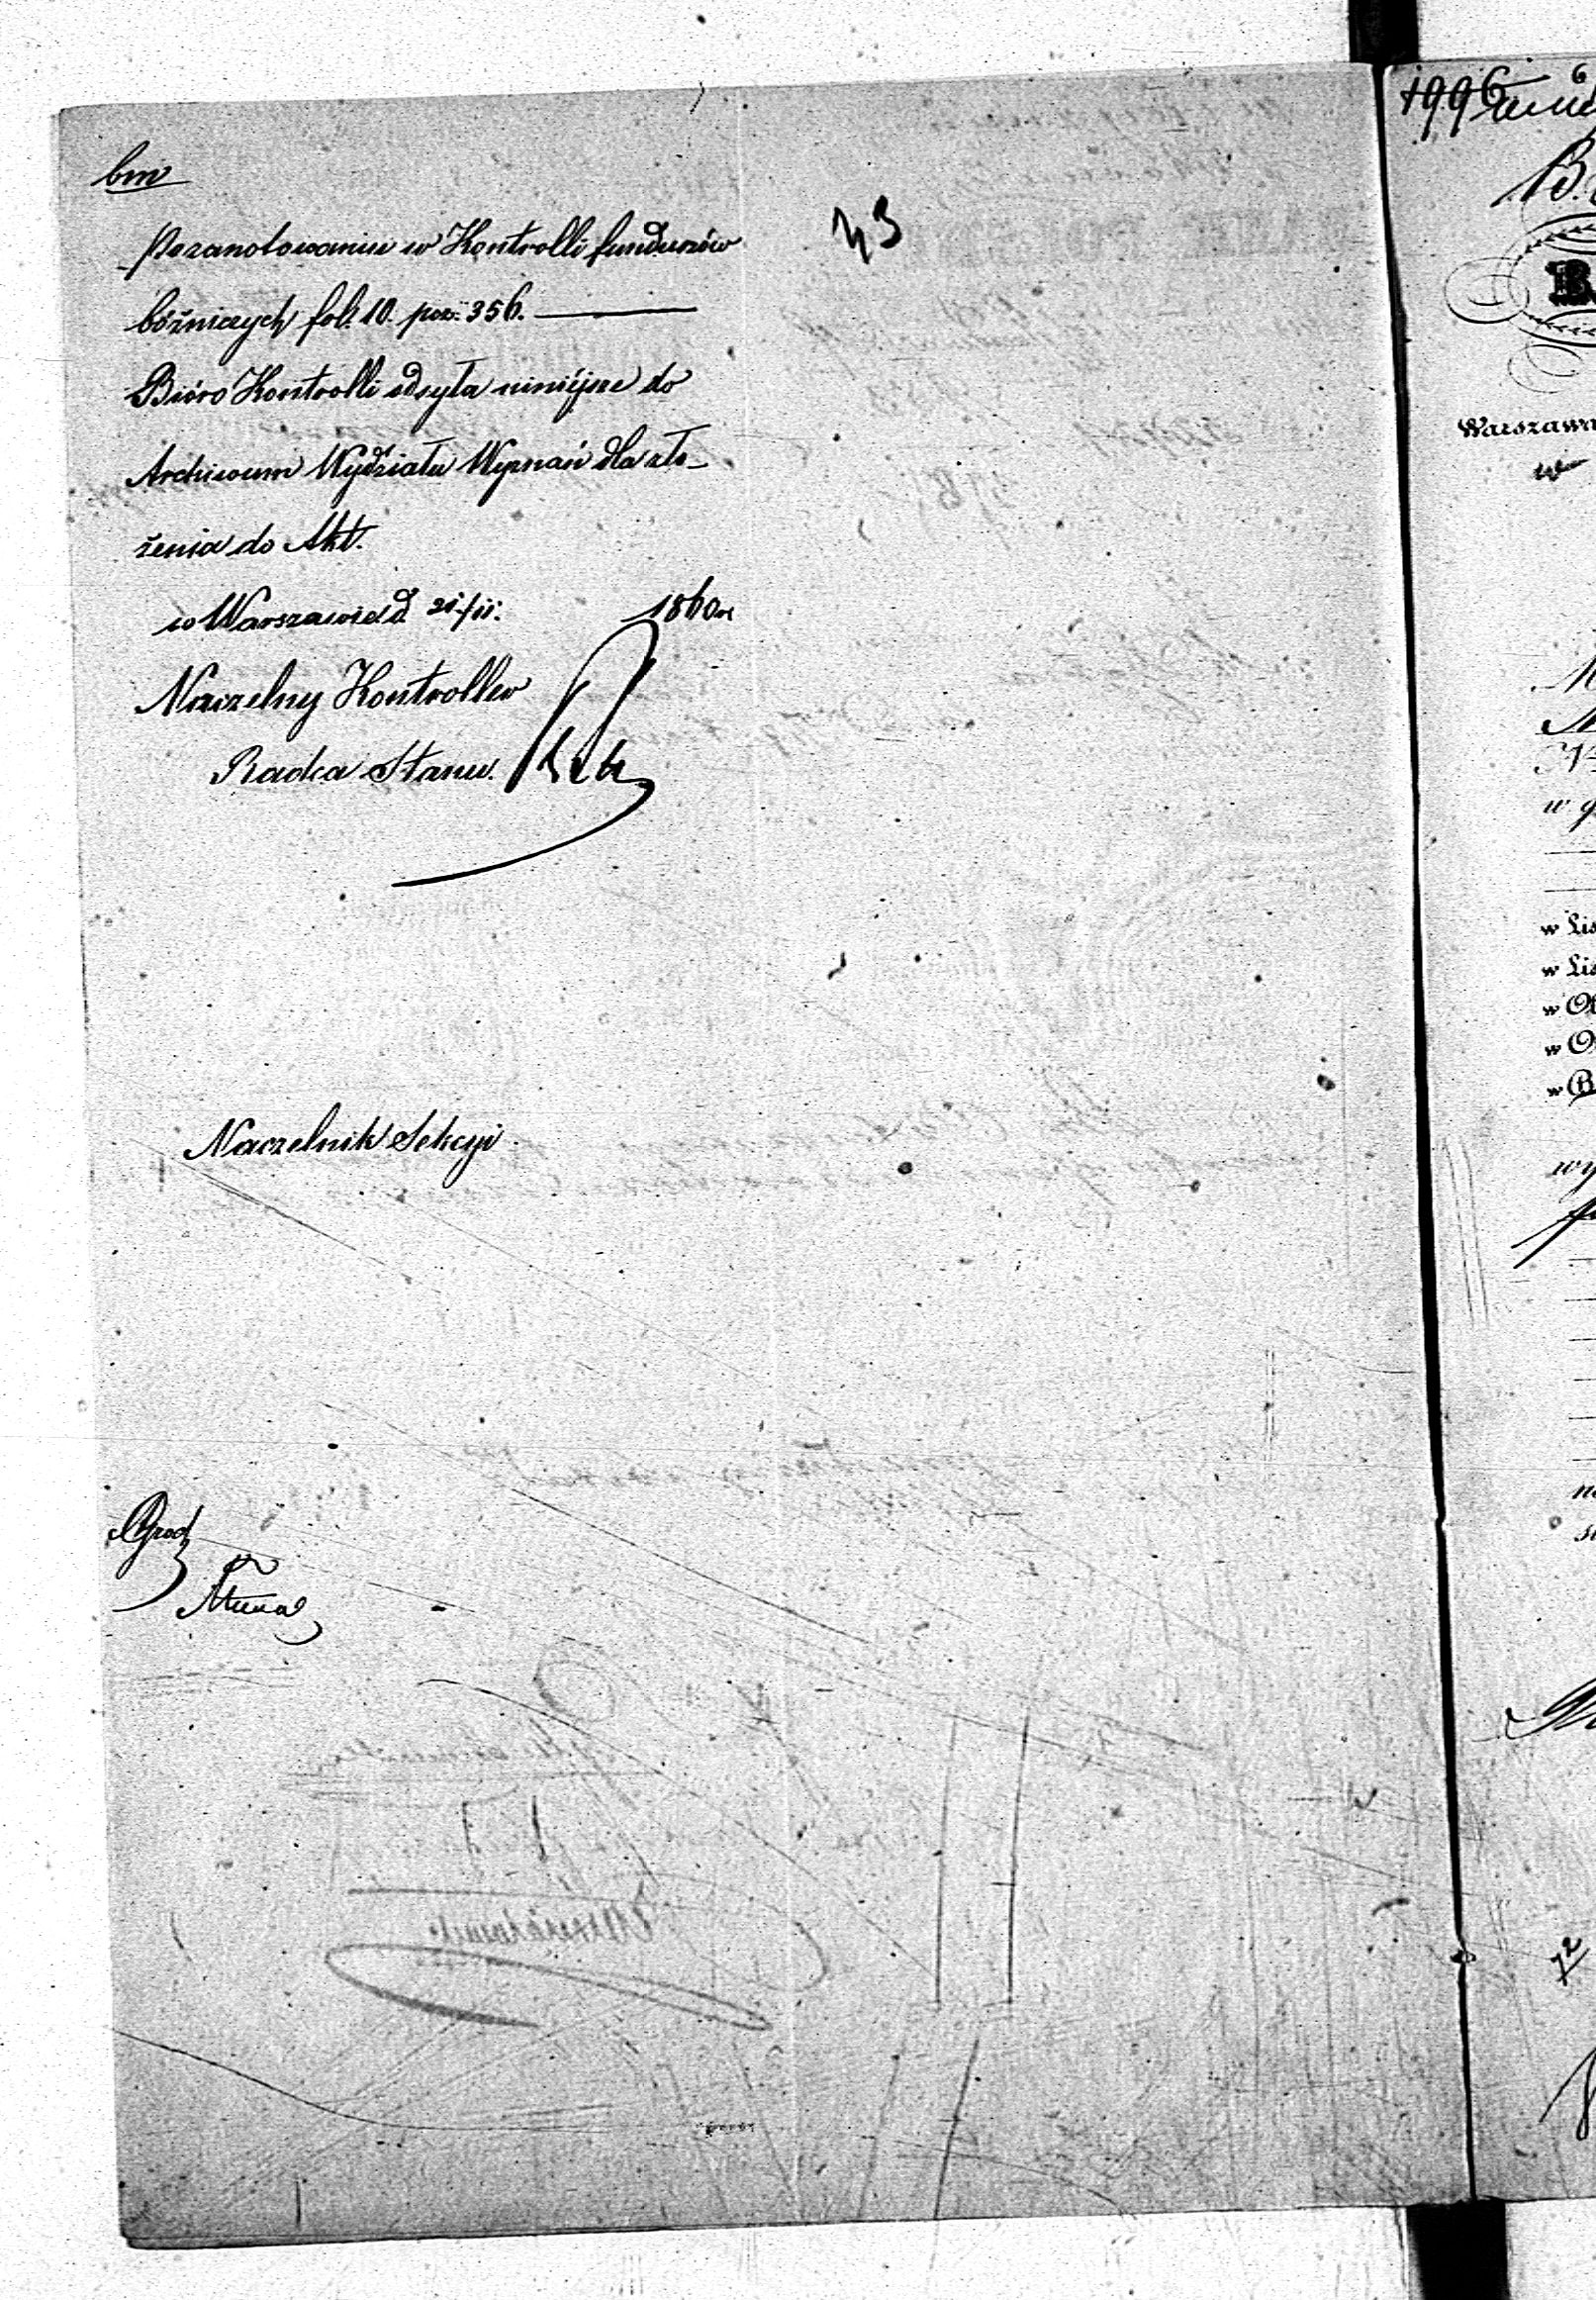 bm
Po zanotowaniu w Kontrolli funduszów
bóżniczych fol. 10. poz. 356.
Bióro Kontrolli odsyła niniéjsze do
Archiwum Wydziału Wyznań dla zło-
żenia do Akt.
w Warszawie d. 21/11. 1860 r
Naczelny Kontroller
Radca Stanu.
43
Naczelnik Sekcyi
1996
6
B.
Warszawa
w
w Lis
w Lis
w
w O
w B
72